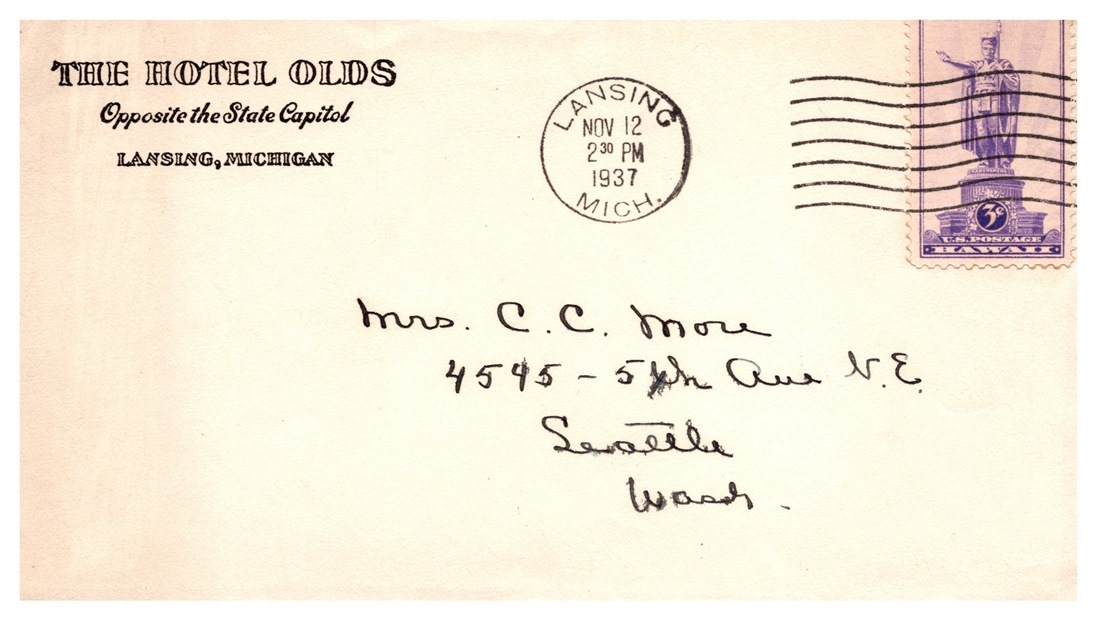 THE HOTEL OLDS
Opposite the State Capitol
LANSING, MICHIGAN
LANSING
NOV 12
2³⁰ PM
1937
MICH.
3¢
U.S. POSTAGE
HAWAII
Mrs. C. C. More
4545 - 5th Ave N.E.
Seattle
Wash.